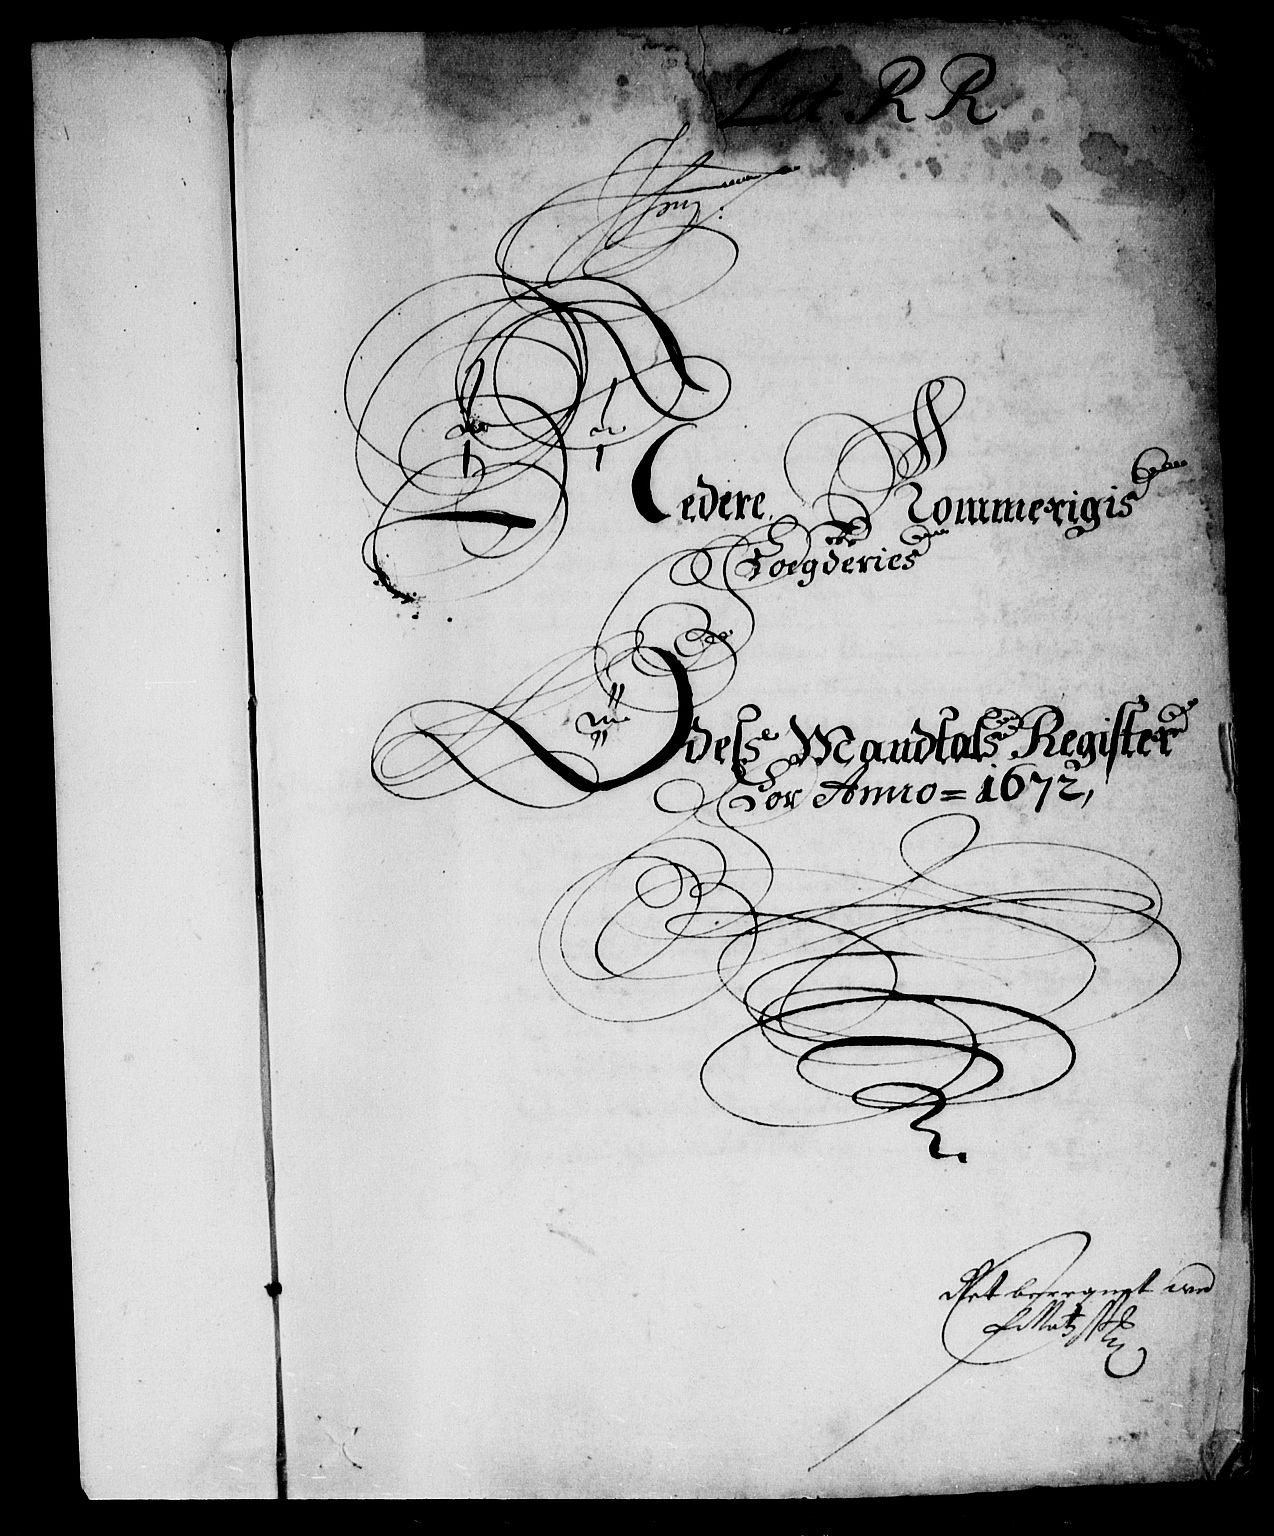 Lit RR
Nedere Rommerigis
Foegderies
Odels Mandtals Register
For Anno = 1672,
Ret beregnet